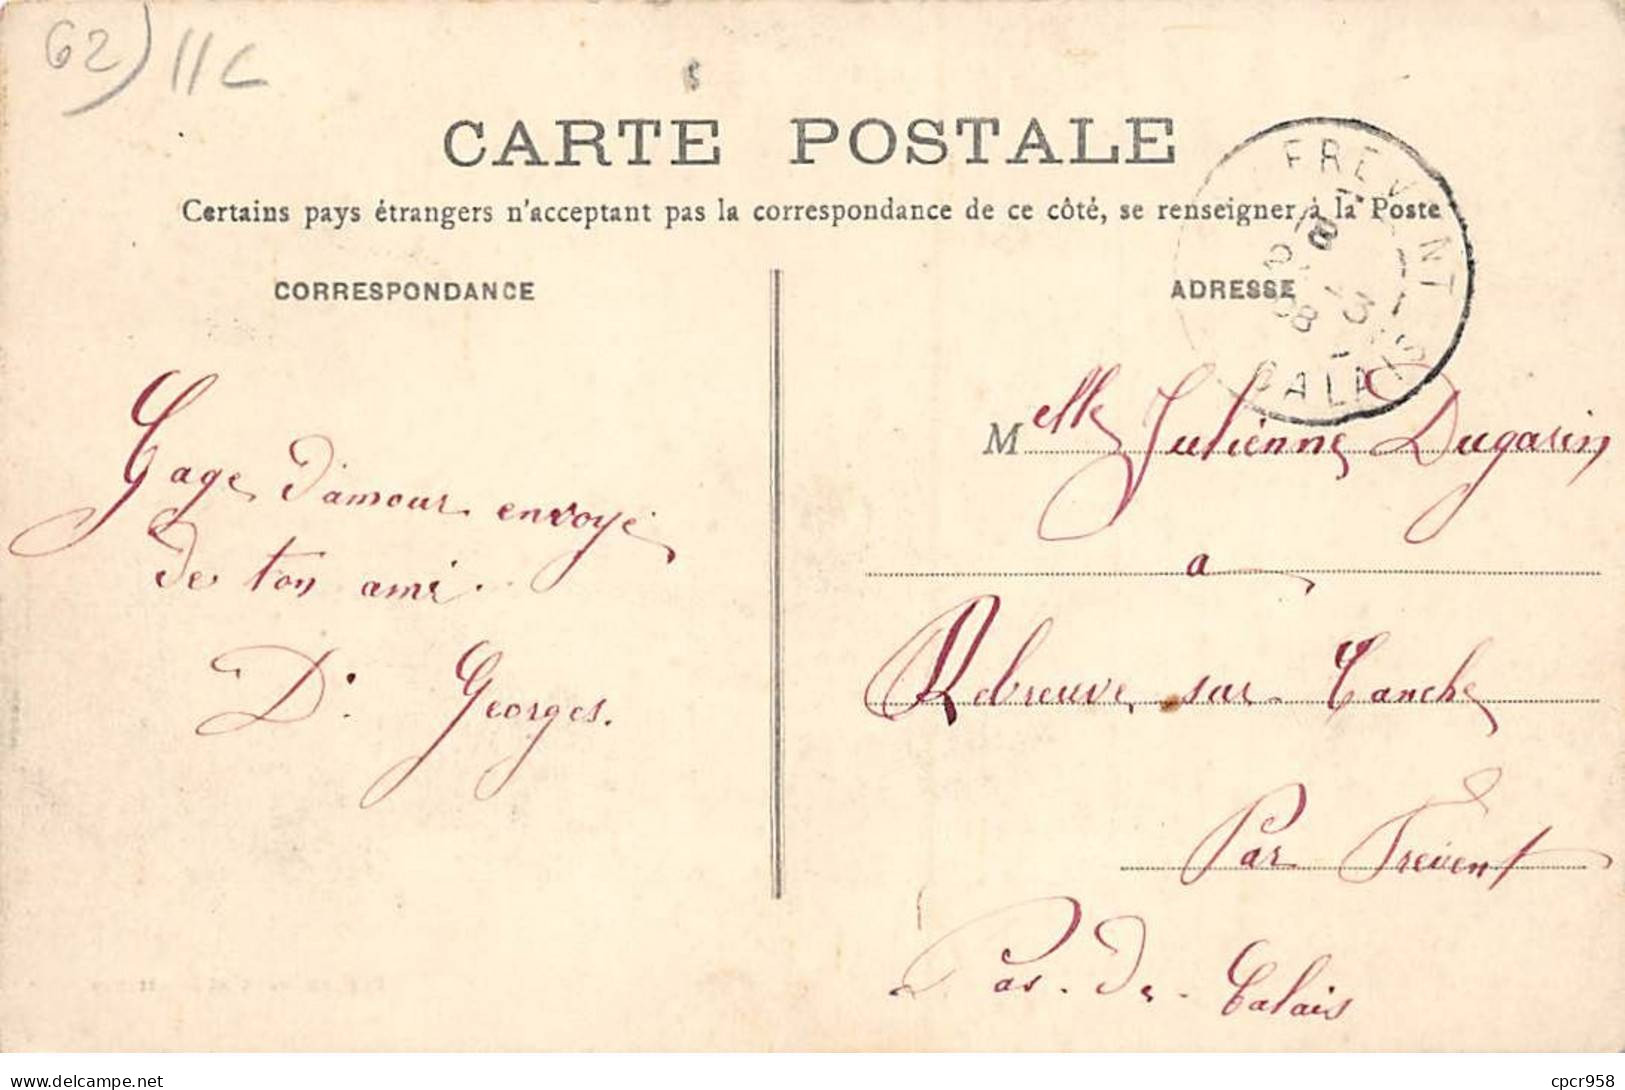 62) 11C
CARTE POSTALE
Certains pays étrangers n'acceptant pas la correspondance de ce côté, se renseigner à la Poste
FREVENT
CALAIS
CORRESPONDANCE
Gage d'amour envoyé
de ton ami.
D. Georges.
ADRESSE
Melle Julienne Dugarin
a
Rebreuve sur Canche
Par Frévent
Pas-de-Calais
delcampe.net
cpcr958